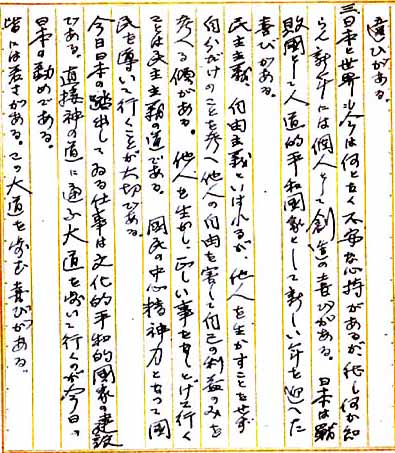 喜びがある。
三、日本と世界 少しは何となく不安な心持があるが、然し何か知
らん新年には個人として創造の喜びがある。日本は戦
敗国として人道的平和国家として新しい年を迎へた
喜びがある。
民主主義、自由主義といはれるが、他人を生かすことをせず
自分だけのことを考へ他人の自由を害して自己の利益のみを
考へる傾がある。他人を生かし正しい事をなしとげて行く
ことは民主主義の道である。国民の中心精神力となって国
民を導いて行くことが大切である。
今日日本の踏出してゐる仕事は文化的平和的国家の建設
である。直接神の道に通ふ大道を歩いて行くのが今日の
日本の勤めである。
皆には若さがある。この大道を歩む喜びがある。